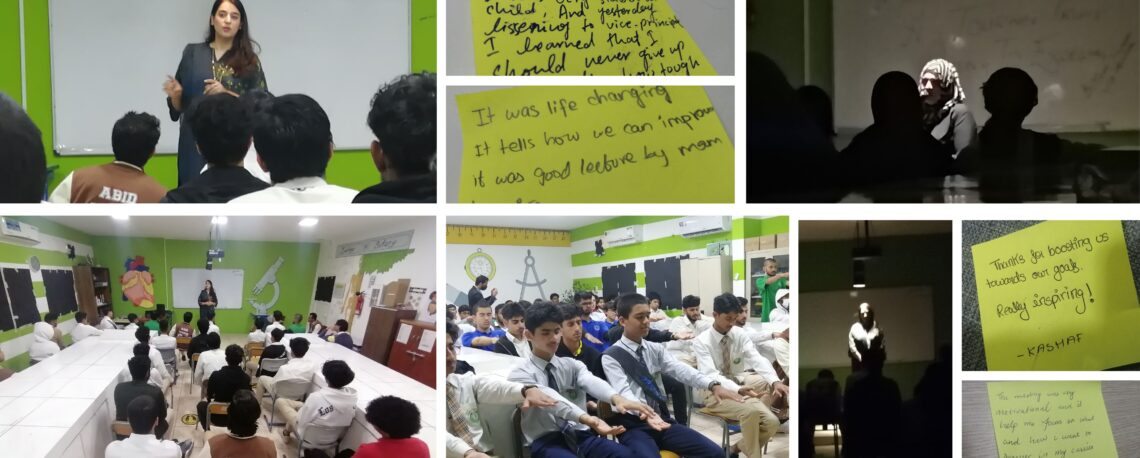 ABID
child, And yesterday
listening to vice-principle
I learned that I
should never give up
how tough
It was life changing
It tells how we can improve
it was good lecture by mam
Los
Thanks for boosting us
towards our goals.
Really inspiring!
-KASHAF
The meeting was very
motivational and it
help me focus on what
and how i want to
in my career